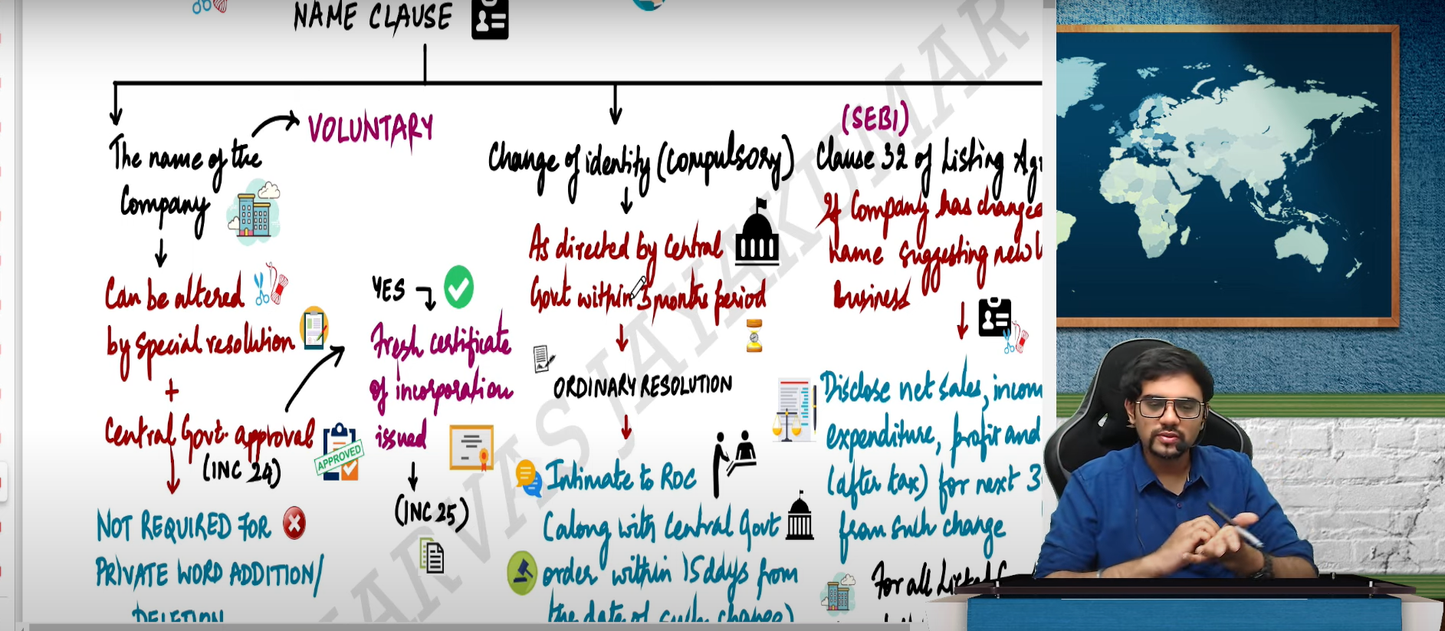 NAME CLAUSE
The name of the
Company
VOLUNTARY
Can be altered
by special resolution
+
Central Govt. approval
(INC 24)
APPROVED
NOT REQUIRED FOR
PRIVATE WORD ADDITION/
DELETION
YES
Fresh certificate
of incorporation
issued
(INC 25)
Change of identity (Compulsory)
As directed by Central
Govt within 3 months period
ORDINARY RESOLUTION
Intimate to ROC
(along with Central Govt
order within 15 days from
the date of such change)
(SEBI)
Clause 32 of Listing
If Company has changed
name suggesting new
Business
Disclose net sales,
expenditure, profit and
(after tax) for next 3
from such change
For all Listed
SARVAS JAYAKUMAR